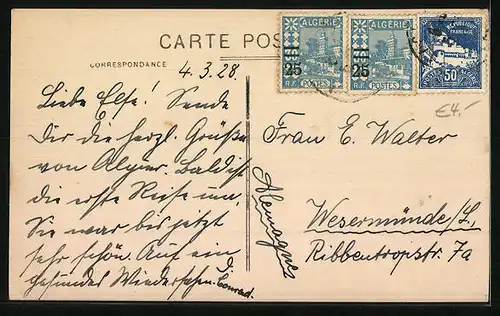 CARTE POS
CORRESPONDANCE
ALGÉRIE
25
R.F. POSTES
ALGÉRIE
25
R.F. POSTES
REPUBLIQUE
FRANÇAISE
50
€4.-
4.3.28.
Liebe Else! Sende
Dir die herzl. Grüße
von Algier. Bald ist
die erste Reise um,
Sie war bis jetzt
sehr schön. Auf ein
gesundes Wiedersehen. D. Conrad.
Frau E. Walter
Allemagne
Wesermünde/L,
Ribbentropstr. 7a